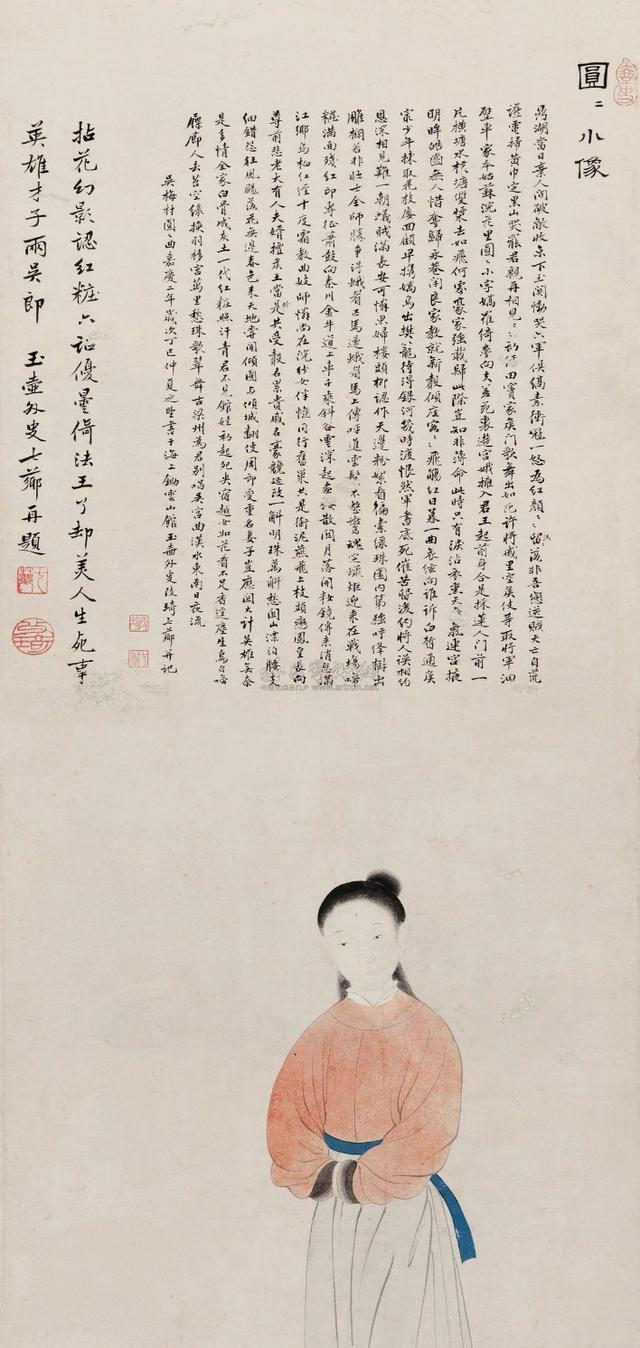 圓〻小像
鼎湖當日棄人間破敵收京下玉關慟哭六軍俱縞素衝冠一怒為紅顏〻〻留落非吾戀逆賊天亡自荒
讌電掃黃巾定黑山哭罷君親再相見〻〻初經田竇家矦門歌舞出如花許將戚里空矦伎等取將軍油
壁車家本姑蘇浣花里圓〻小字嬌羅綺夢向夫差苑裏遊宮娥擁入君王起前身合是採蓮人門前一
片橫塘水橫塘雙槳去如飛何處豪家強載歸此際豈知非薄命此時只有淚沾衣熏天意氣連宮掖
明眸皓齒無人惜奪歸永巷閉良家教就新聲傾座客〻〻飛觴紅日暮一曲哀絃向誰訴白皙通矦
最少年揀取花枝屢回顧早攜嬌鳥出樊籠待得銀河幾時渡恨煞軍書底死催苦留後約將人誤相約
恩深相見難一朝蟻賊滿長安可憐思婦樓頭柳認作天邊粉絮看徧索綠珠圍內第強呼絳樹出
雕欄若非壯士全師勝爭得蛾眉匹馬還蛾眉馬上傳呼進雲鬟不整驚魂定蠟炬迎來在戰場啼
糚滿面殘紅印專征簫鼓向秦川金牛道上車千乘斜谷雲深起畫樓散關月落開粧鏡傳來消息滿
江鄉烏桕紅經十度霜教曲妓師憐尚在浣紗女伴憶同行舊巢共是銜泥燕飛上枝頭變鳳皇長向
尊前悲老大有人夫婿擅矦王當時是共受聲名累貴戚名豪競延致一斛明珠萬斛愁關山漂泊腰支
細錯怨狂風颺落花無邊春色來天地嘗聞傾國與傾城翻使周郎受重名妻子豈應關大計英雄無奈
是多情全家白骨成灰土一代紅粧照汗青君不見館娃初起鴛央宿越女如花看不足香逕塵生鳥自啼
屧廊人去苔空綠換羽移宮萬里愁珠歌翠舞古梁州為君別唱吳宮曲漢水東南日夜流
吳梅村圓〻曲嘉慶二年歲次丁巳仲夏之望書于海上鋤雲山館玉壺外史改琦七薌并記
拈花幻影認紅粧六詔優曇倚法王了却美人生死事
英雄才子兩吳郎 玉壺外史七薌再題
www.artron.net